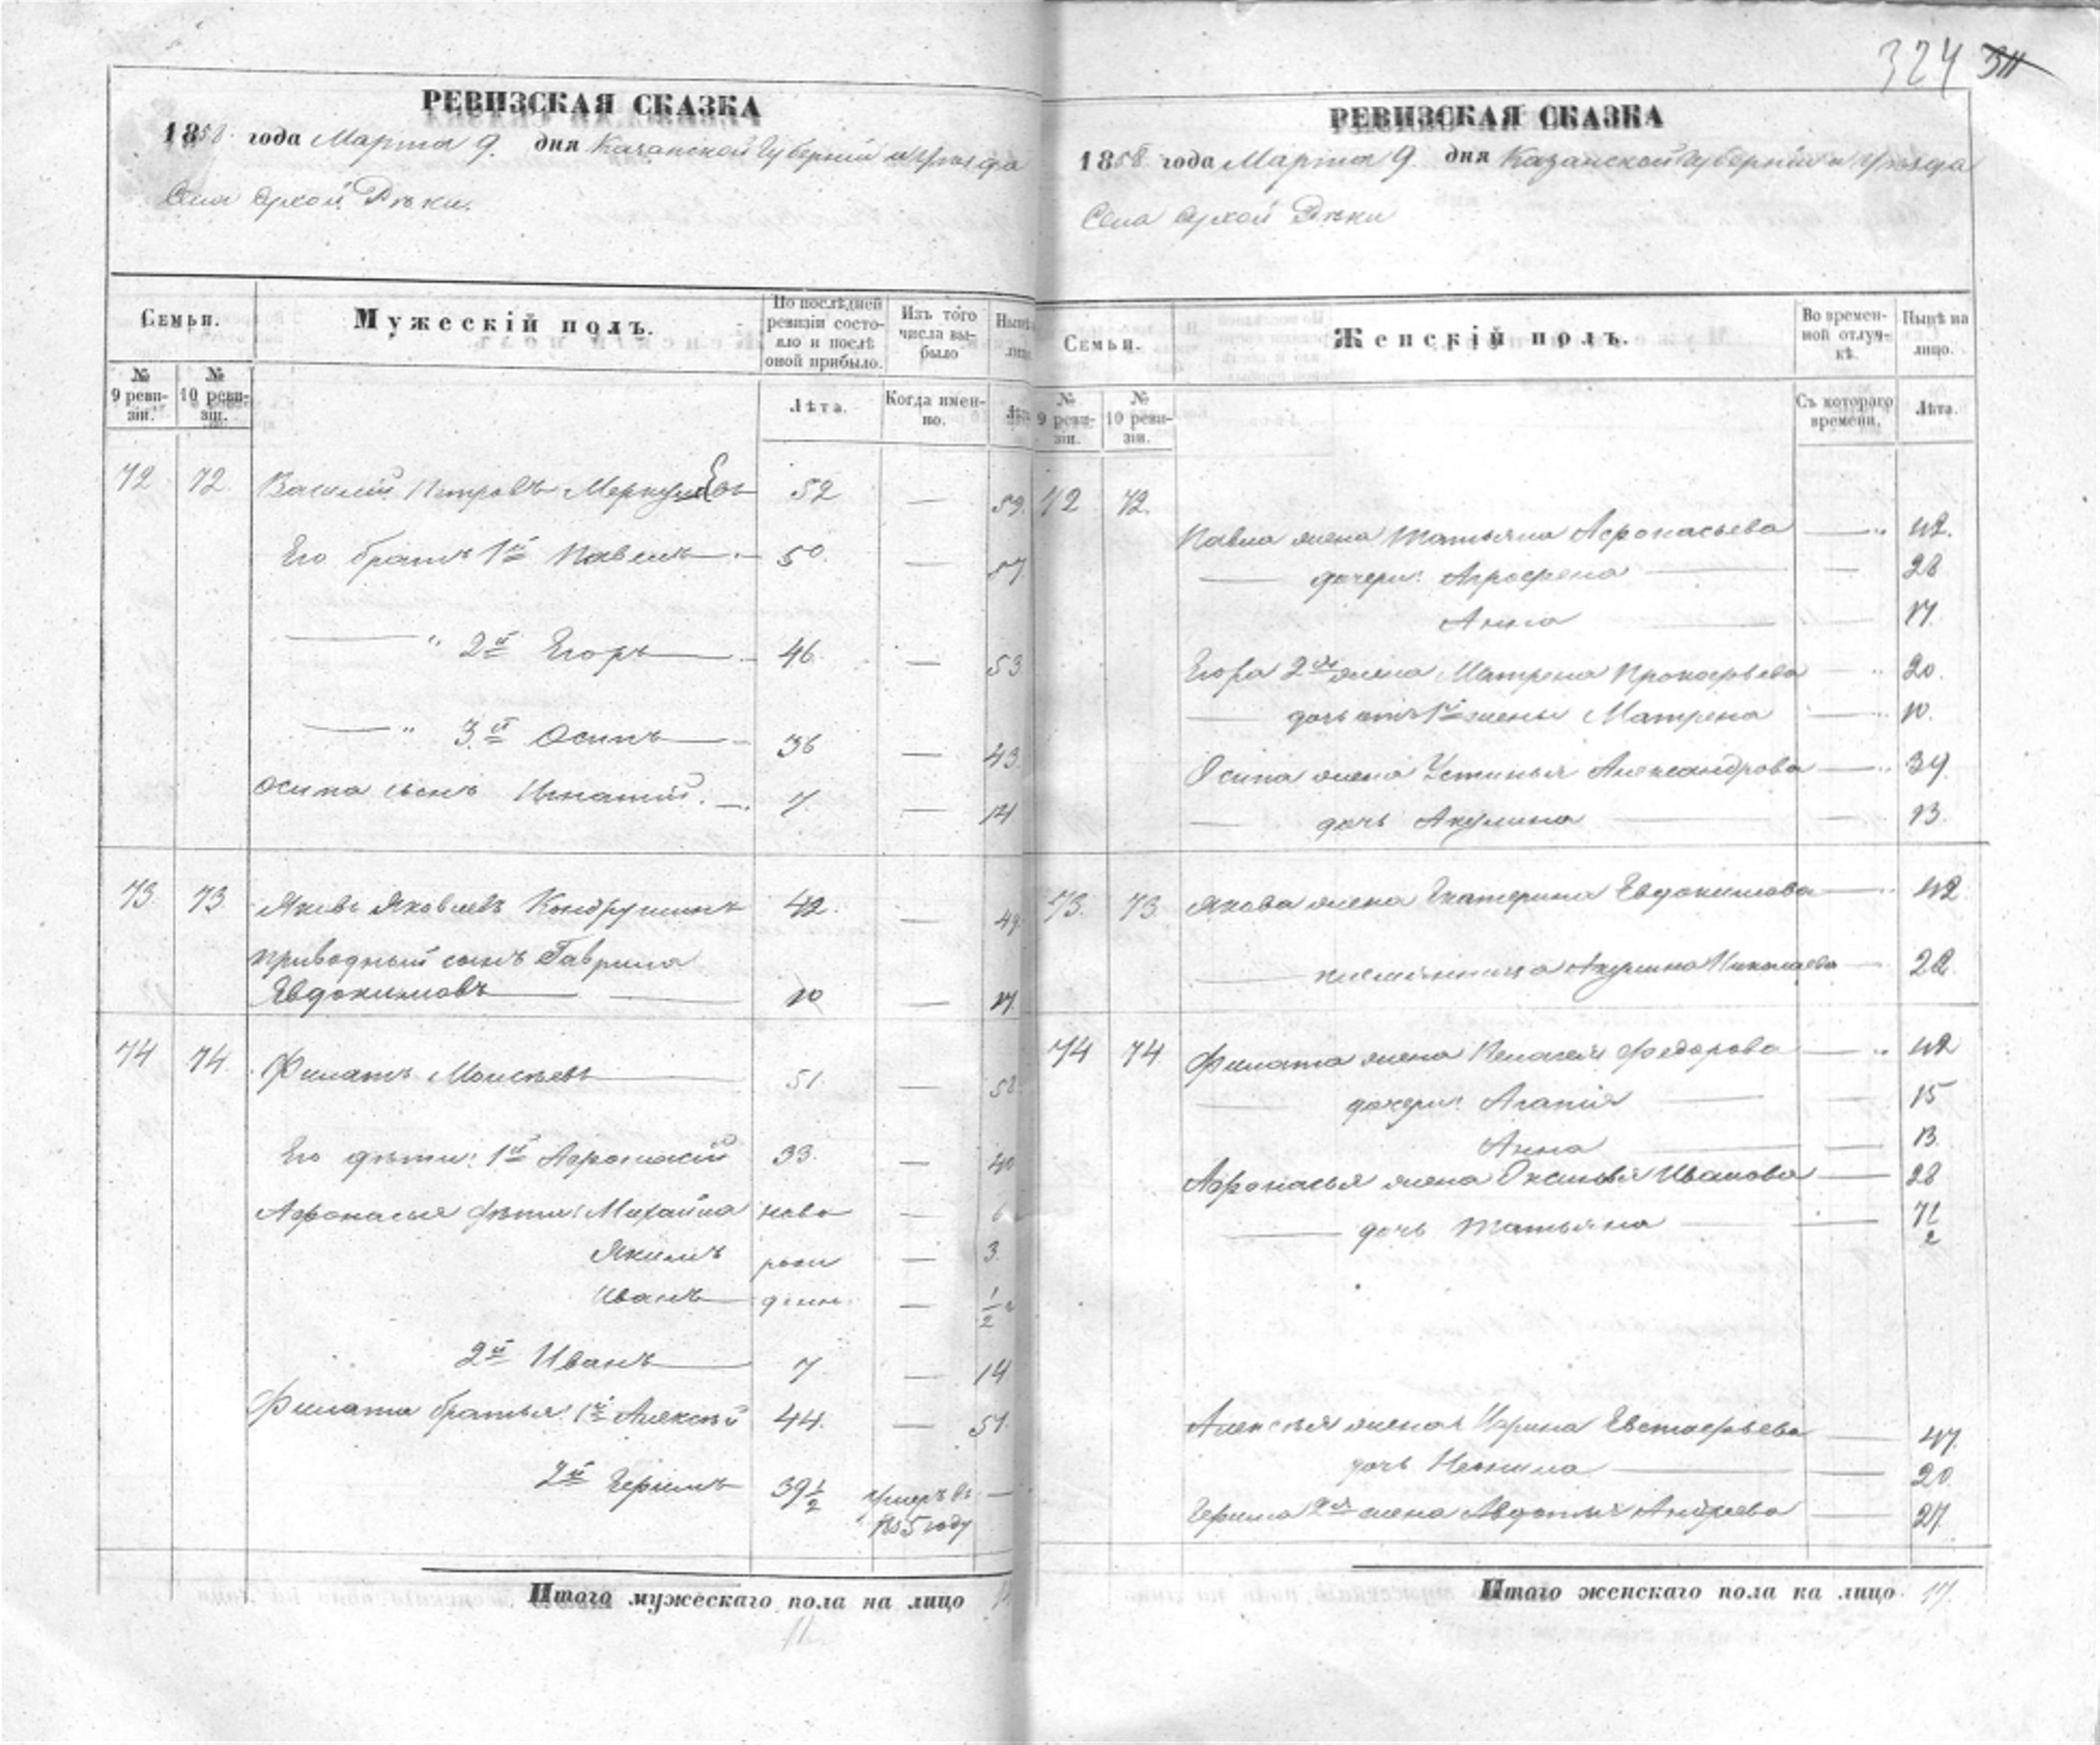 324 311
РЕВИЗСКАЯ СКАЗКА
1858 года Марта 9. дня Казанской Губерніи и Уѣзда
Села Сухой Рѣки.
Семьи.
Мужескій полъ.
По послѣдней ревизіи состояло и послѣ оной прибыло.
Изъ того числа выбыло
Нынѣ на лицо
№ 9 ревизіи.
№ 10 ревизіи.
Лѣта.
Когда именно.
Лѣта
72 72. Василий Петровъ Меркуловъ 52 — 59.
Его братъ 1й Павелъ 50. — 57
— " 2й Егоръ 46. — 53
— " 3й Осипъ 36 — 43
Осипа сынъ Игнатий. 7 — 14
73. 73. Яковъ Яковлевъ Кондрушинъ 42. — 49
приводный сынъ Гаврила
Евдокимовъ 10 — 17.
74 74. Филатъ Моисѣевъ 51. — 58
Его дѣти: 1й Афонасий 33. — 40
Афонасья дѣти: Михайла ново — 6
Якимъ рож — 3.
Иванъ денн. — 1/2
2й Иванъ 7 — 14
Филата братья: 1й Алексѣй 44. — 51.
2й Ефимъ 39 1/2 умеръ въ —
1855 году
Итого мужескаго пола на лицо
11
РЕВИЗСКАЯ СКАЗКА
1858 года Марта 9. дня Казанской Губерніи и Уѣзда
Села Сухой Рѣки
Семьи.
Женскій полъ.
Во временной отлучкѣ.
Нынѣ на лицо.
№ 9 ревизіи.
№ 10 ревизіи.
Съ котораго времени.
Лѣта.
72 72.
Павла жена Татьяна Афонасьева — 42.
— дочери: Агрофена — 28
Анна — 17.
Егора 2я жена Матрена Прокофьева — 20.
— дочь отъ 1й жены Матрена — 10.
Осипа жена Устинья Александрова — 39.
— дочь Акулина — 13.
73. 73 Якова жена Екатерина Евдокимова — 42
— племянница Акулина Николаева — 22
74 74. Филата жена Пелагея Федорова — 42
— дочери: Агапія — 15
Анна — 13.
Афонасья жена Оксинья Иванова — 28
— дочь Татьяна — 7 1/2
Алексѣя жена Ирина Евстафьева — 47.
дочь Ненила — 20.
Ефима 2я жена Авдотья Андреева — 27.
Итого женскаго пола на лицо. 17.